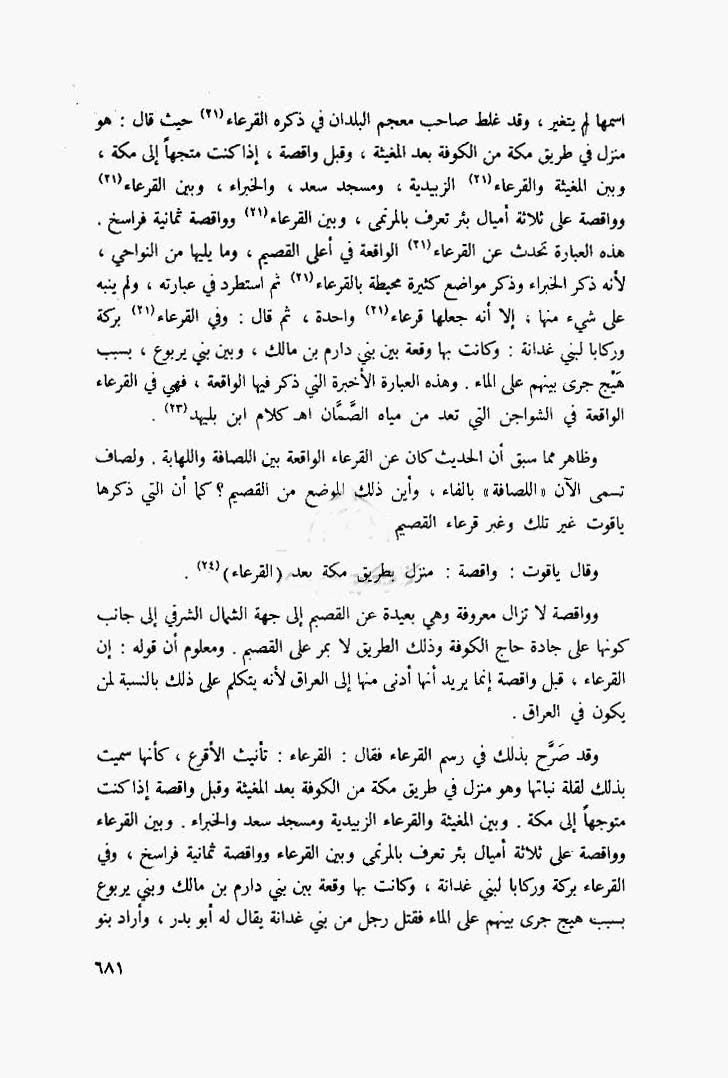 اسمها لم يتغير ، وقد غلط صاحب معجم البلدان في ذكره القرعاء (٢١) حيث قال : هو
منزل في طريق مكة من الكوفة بعد المغيثة ، وقبل واقصة ، إذا كنت متجهاً إلى مكة ،
وبين المغيثة والقرعاء (٢١) الزبيدية ، ومسجد سعد ، والخبراء ، وبين القرعاء (٢١)
وواقصة على ثلاثة أميال بئر تعرف بالمرتمى ، وبين القرعاء (٢١) وواقصة ثمانية فراسخ .
هذه العبارة تحدث عن القرعاء (٢١) الواقعة في أعلى القصيم ، وما يليها من النواحي ،
لأنه ذكر الخبراء وذكر مواضع كثيرة محيطة بالقرعاء (٢١) ثم استطرد في عبارته ، ولم ينبه
على شيء منها ، إلا أنه جعلها قرعاء (٢١) واحدة ، ثم قال : وفي القرعاء (٢١) بركة
وركابا لبني غدانة : وكانت بها وقعة بين بني دارم بن مالك ، وبين بني يربوع ، بسبب
هَيْج جرى بينهم على الماء . وهذه العبارة الأخيرة التي ذكر فيها الواقعة ، فهي في القرعاء
الواقعة في الشواجن التي تعد من مياه الصَّمَّان اهـ كلام ابن بليهد (٢٣) .
وظاهر مما سبق أن الحديث كان عن القرعاء الواقعة بين اللصافة واللهابة . ولصاف
تسمى الآن «اللصافة» بالفاء ، وأين ذلك الموضع من القصيم ؟ كما أن التي ذكرها
ياقوت غير تلك وغير قرعاء القصيم
وقال ياقوت : واقصة : منزل بطريق مكة بعد (القرعاء) (٢٤) .
وواقصة لا تزال معروفة وهي بعيدة عن القصيم إلى جهة الشمال الشرقي إلى جانب
كونها على جادة حاج الكوفة وذلك الطريق لا يمر على القصيم . ومعلوم أن قوله : إن
القرعاء ، قبل واقصة إنما يريد أنها أدنى منها إلى العراق لأنه يتكلم على ذلك بالنسبة لمن
يكون في العراق .
وقد صَرَّح بذلك في رسم القرعاء فقال : القرعاء : تأنيث الأقرع ، كأنها سميت
بذلك لقلة نباتها وهو منزل في طريق مكة من الكوفة بعد المغيثة وقبل واقصة إذا كنت
متوجهاً إلى مكة . وبين المغيثة والقرعاء الزبيدية ومسجد سعد والخبراء . وبين القرعاء
وواقصة على ثلاثة أميال بئر تعرف بالمرتمى وبين القرعاء وواقصة ثمانية فراسخ ، وفي
القرعاء بركة وركابا لبني غدانة ، وكانت بها وقعة بين بني دارم بن مالك وبني يربوع
بسبب هيج جرى بينهم على الماء فقتل رجل من بني غدانة يقال له أبو بدر ، وأراد بنو
٦٨١